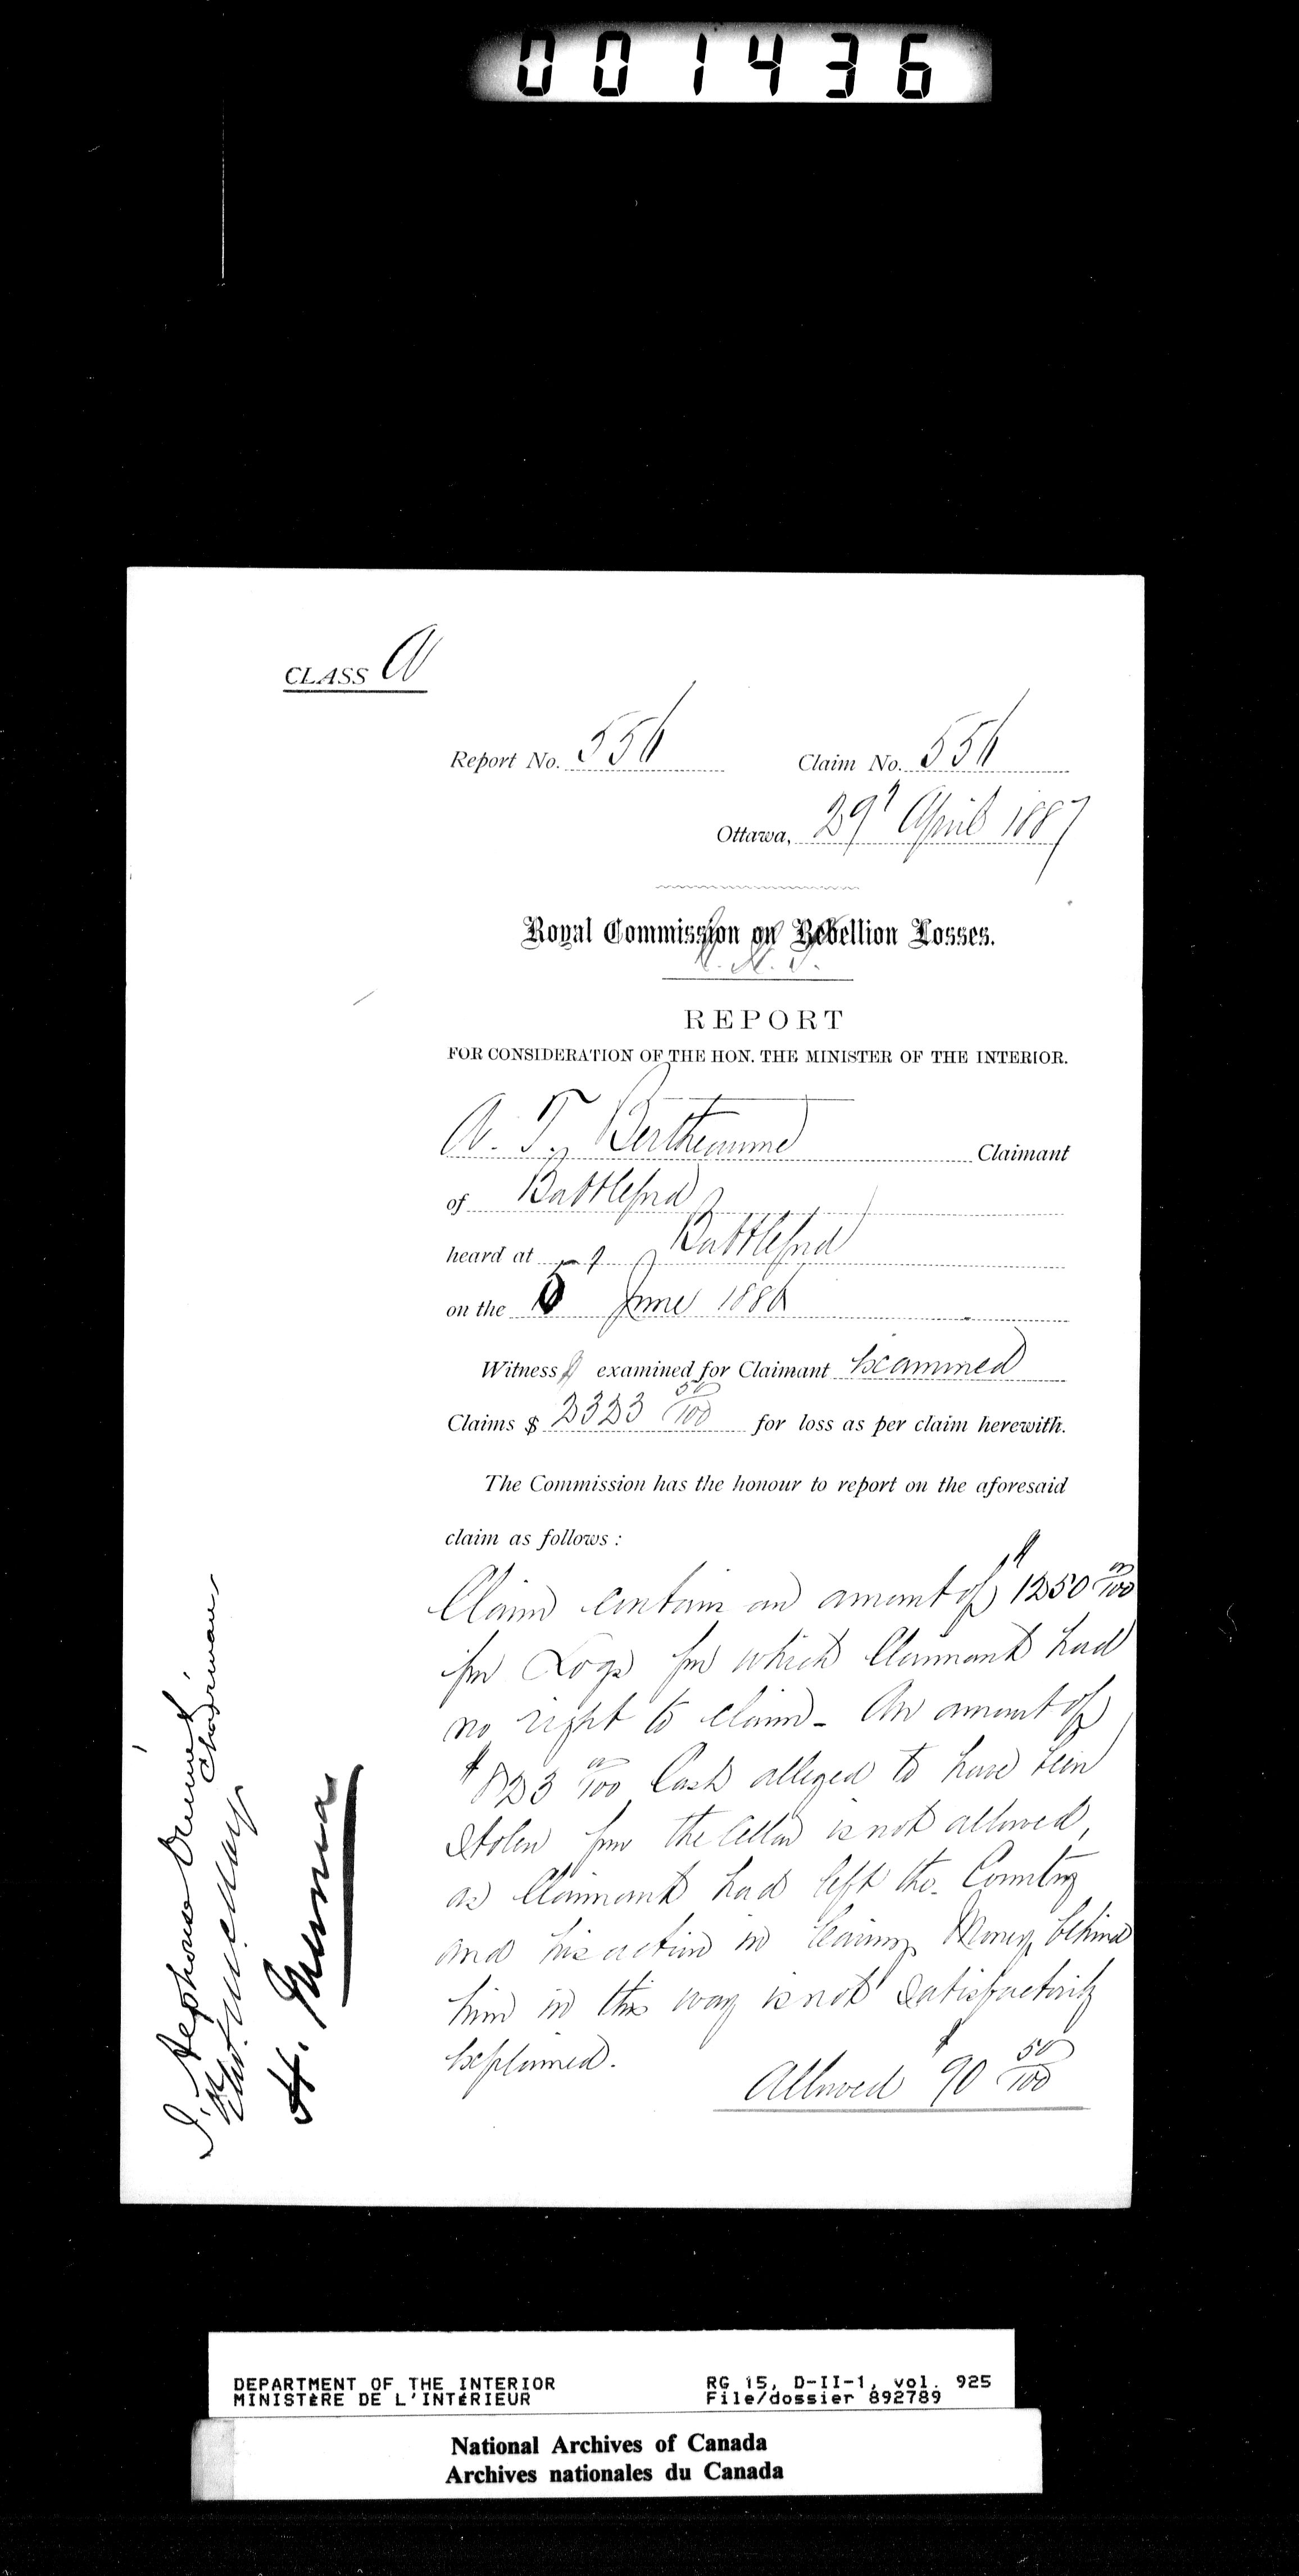 001436
CLASS A
Report No. 556 Claim No. 556
Ottawa, 29" April 1887
Royal Commission on Rebellion Losses.
REPORT
FOR CONSIDERATION OF THE HON. THE MINISTER OF THE INTERIOR.
A. T. Berthiaume Claimant
of Battleford
heard at Battleford
on the 5" June 1886
Witness examined for Claimant Examined
Claims $ 2323 50/100 for loss as per claim herewith.
The Commission has the honour to report on the aforesaid
claim as follows :
Claim contain an amount of $1250 00/100
for Logs for which Claimant had
no right to claim - An amount of
$823 00/100 Cash alleged to have been
stolen from the cellar is not allowed,
as Claimant had left the Country
and his action in leaving Money behind
him in this way is not satisfactorily
explained.
Allowed $90 50/100
J. Alphonse Ouimet
Chairman
H. Muma
DEPARTMENT OF THE INTERIOR RG 15, D-II-1, vol. 925
MINISTÈRE DE L'INTÉRIEUR File/dossier 892789
National Archives of Canada
Archives nationales du Canada